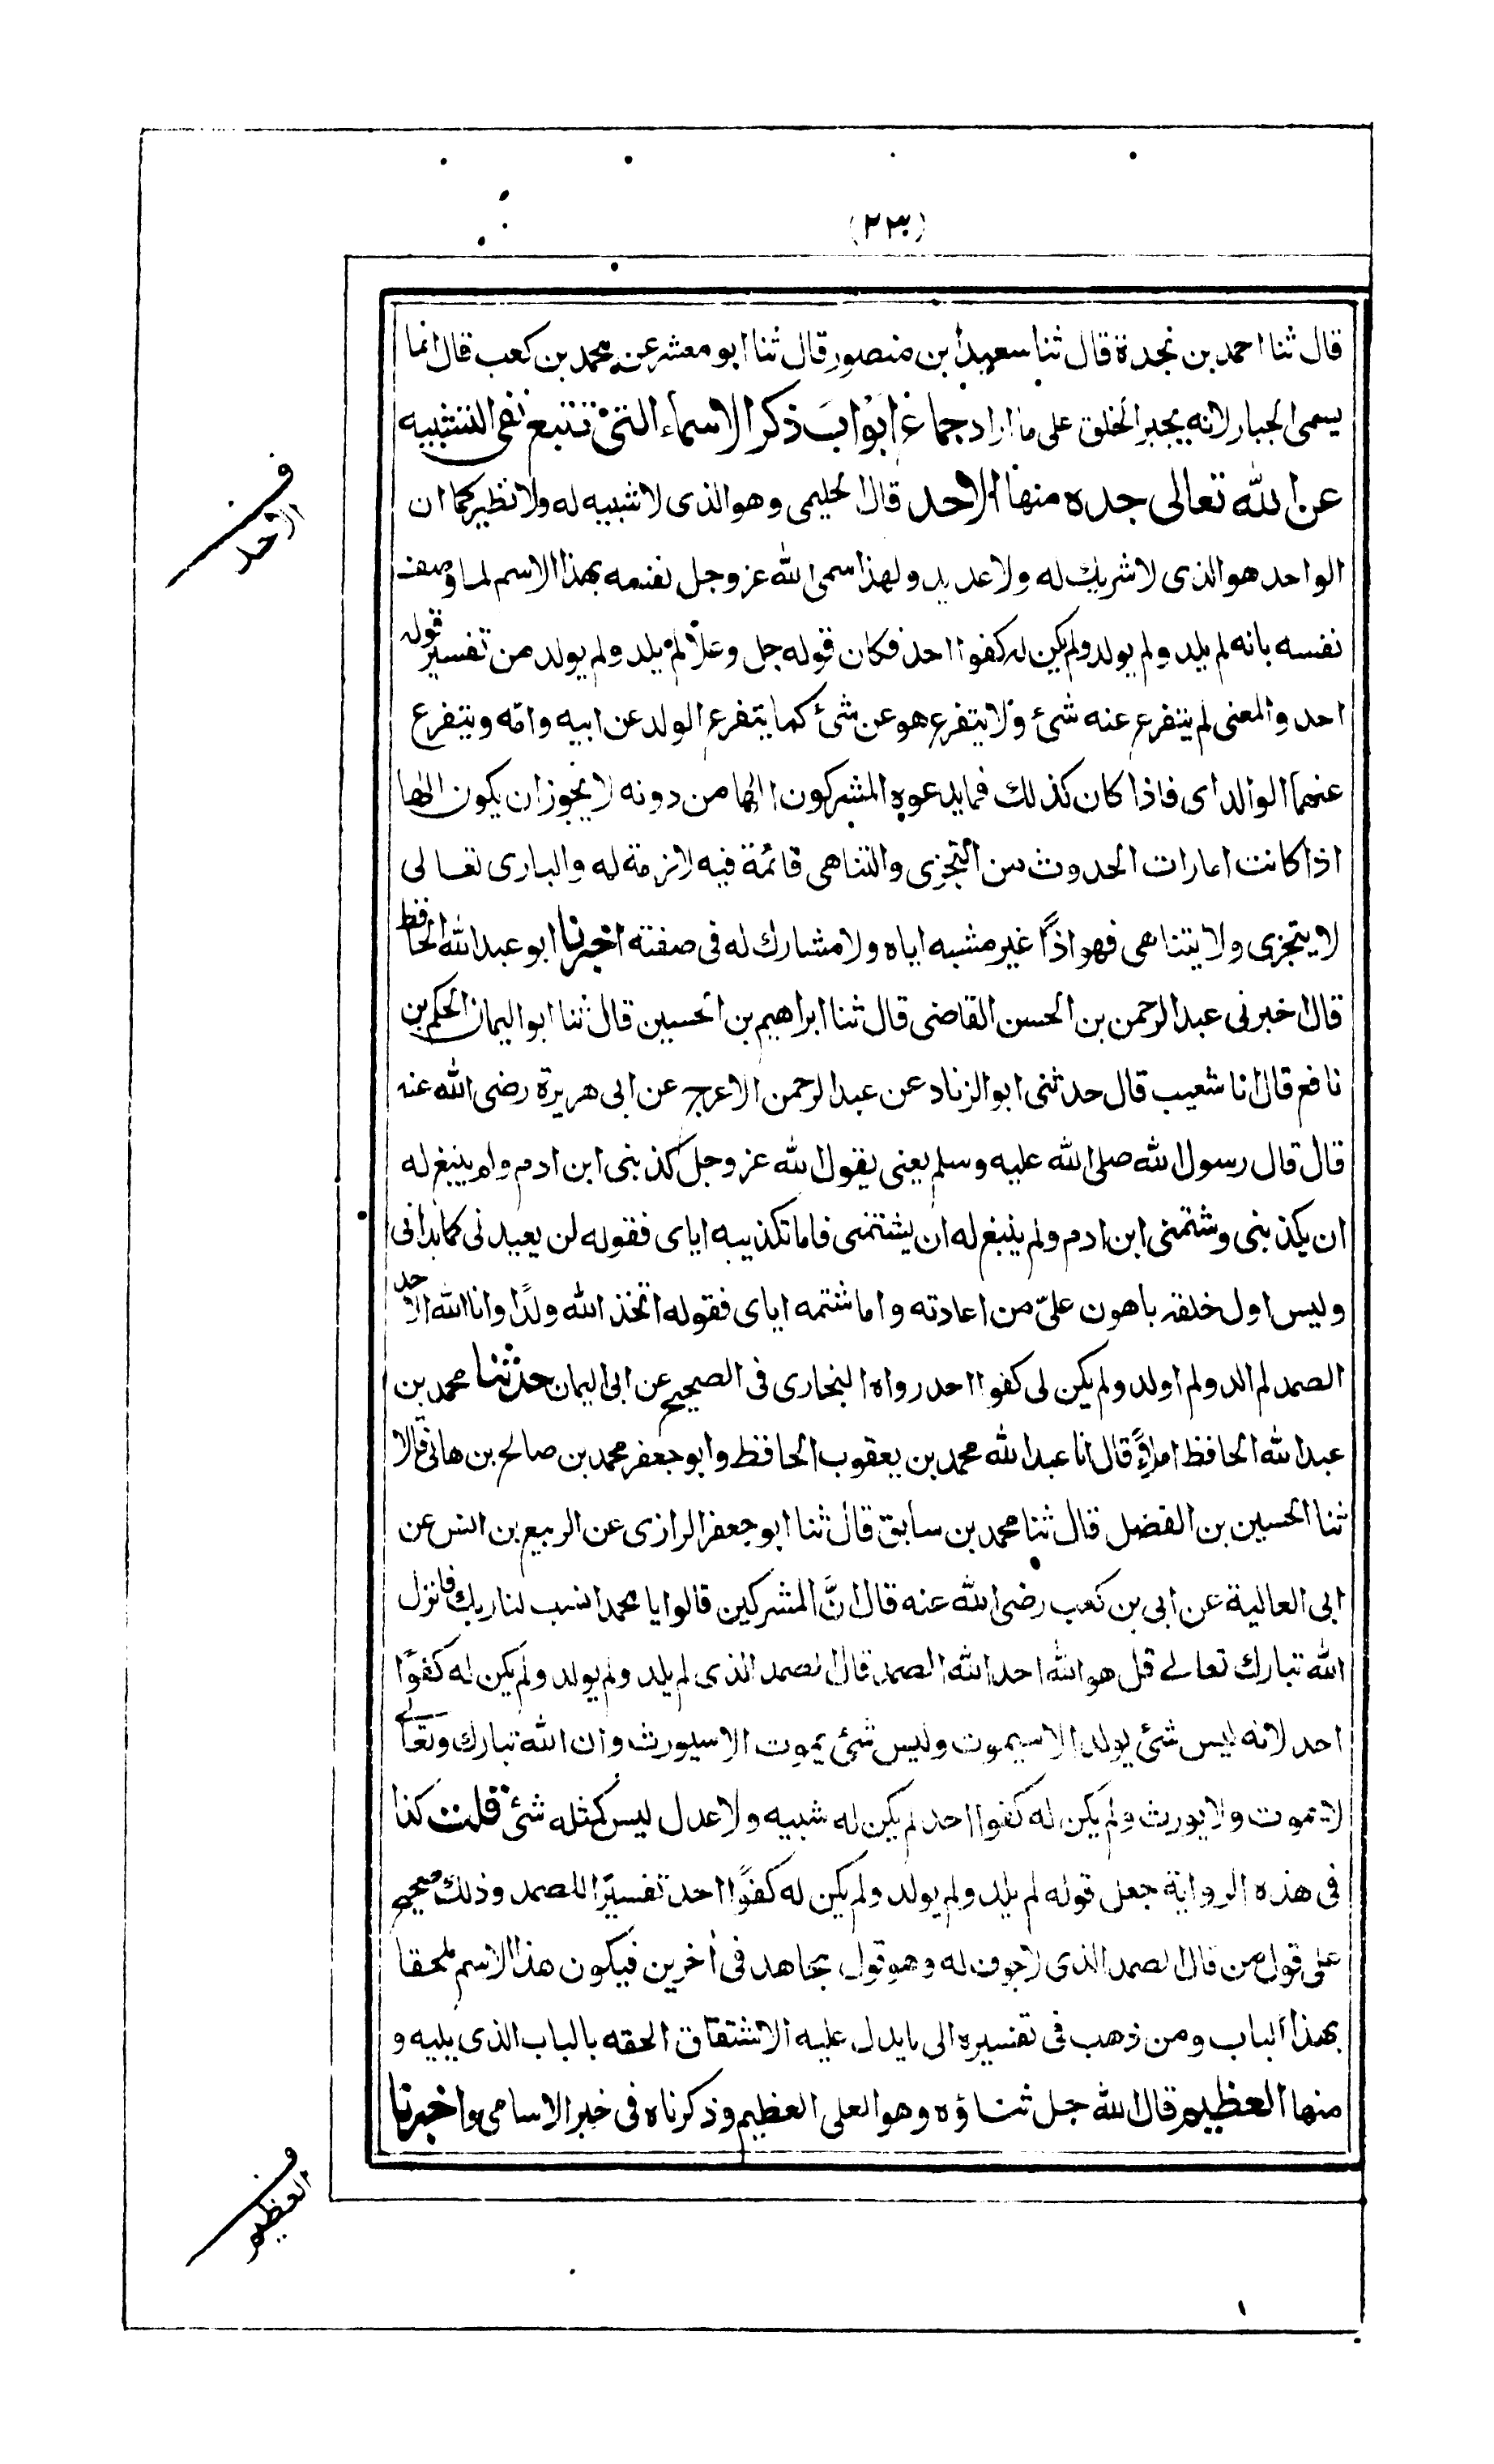 (٢٣)
قال ثنا احمد بن نجدة قال ثنا سعيد ابن منصور قال ثنا ابو معشر عن محمد بن كعب قال انما
يسمى الجبار لانه يجبر الخلق على ما اراد جماع ابواب ذكر الاسماء التى تتبع نفى التشبيه
عن الله تعالى جده منها الاحد قال الحليمى وهو الذى لا شبيه له ولا نظير كما ان
الواحد هو الذى لا شريك له ولا عديد ولهذا سمى الله عز وجل نفسه بهذا الاسم لما وصف
نفسه بانه لم يلد ولم يولد ولم يكن له كفوا احد فكان قوله جل وعلا لم يلد ولم يولد من تفسير قوله
احد والمعنى لم يتفرع عنه شئ ولا يتفرع هو عن شئ كما يتفرع الولد عن ابيه وامه ويتفرع
عنهما الولد اى فاذا كان كذلك فما يدعوه المشركون الها من دونه لا يجوز ان يكون الها
اذا كانت امارات الحدوث من التجزى والتناهى قائمة فيه لازمة له والبارى تعالى
لا يتجزى ولا يتناهى فهو اذًا غير مشبه اياه ولا مشارك له فى صفته اخبرنا ابو عبد الله الحافظ
قال اخبرنى عبد الرحمن بن الحسن القاضى قال ثنا ابراهيم بن الحسين قال ثنا ابو اليمان الحكم بن
نافع قال انا شعيب قال حدثنى ابو الزناد عن عبد الرحمن الاعرج عن ابى هريرة رضى الله عنه
قال قال رسول الله صلى الله عليه وسلم يعنى يقول الله عز وجل كذبنى ابن ادم ولم ينبغ له
ان يكذبنى وشتمنى ابن ادم ولم ينبغ له ان يشتمنى فاما تكذيبه اياى فقوله لن يعيدنى كما بدانى
وليس اول خلقه باهون علىّ من اعادته واما شتمه اياى فقوله اتخذ الله ولدًا وانا الله الاحد
الصمد لم الد ولم اولد ولم يكن لى كفوا احد رواه البخارى فى الصحيح عن ابى اليمان حدثنا محمد بن
عبد الله الحافظ املاءً قال انا عبد الله محمد بن يعقوب الحافظ وابو جعفر محمد بن صالح بن هانى قالا
ثنا الحسين بن الفضل قال ثنا محمد بن سابق قال ثنا ابو جعفر الرازى عن الربيع بن انس عن
ابى العالية عن ابى بن كعب رضى الله عنه قال انّ المشركين قالوا يا محمد انسب لنا ربك فانزل
الله تبارك تعالى قل هو الله احد الله الصمد قال الصمد الذى لم يلد ولم يولد ولم يكن له كفوًا
احد لانه ليس شئ يولد الا سيموت وليس شئ يموت الا سيورث وان الله تبارك وتعالى
لا يموت ولا يورث ولم يكن له كفوا احد لم يكن له شبيه ولا عدل ليس كمثله شئ قلت كذا
فى هذه الرواية جعل قوله لم يلد ولم يولد ولم يكن له كفوًا احد تفسيرًا للصمد وذلك صحيح
على قول من قال الصمد الذى لا جوف له وهو قول مجاهد فى أخرين فيكون هذا الاسم ملحقا
بهذا الباب ومن ذهب فى تفسيره الى ما يدل عليه الاشتقاق الحقه بالباب الذى يليه و
منها العظيم قال الله جل ثناؤه وهو العلى العظيم وذكرناه فى خبر الاسامى واخبرنا
ف
الاحد
ف
العظيم